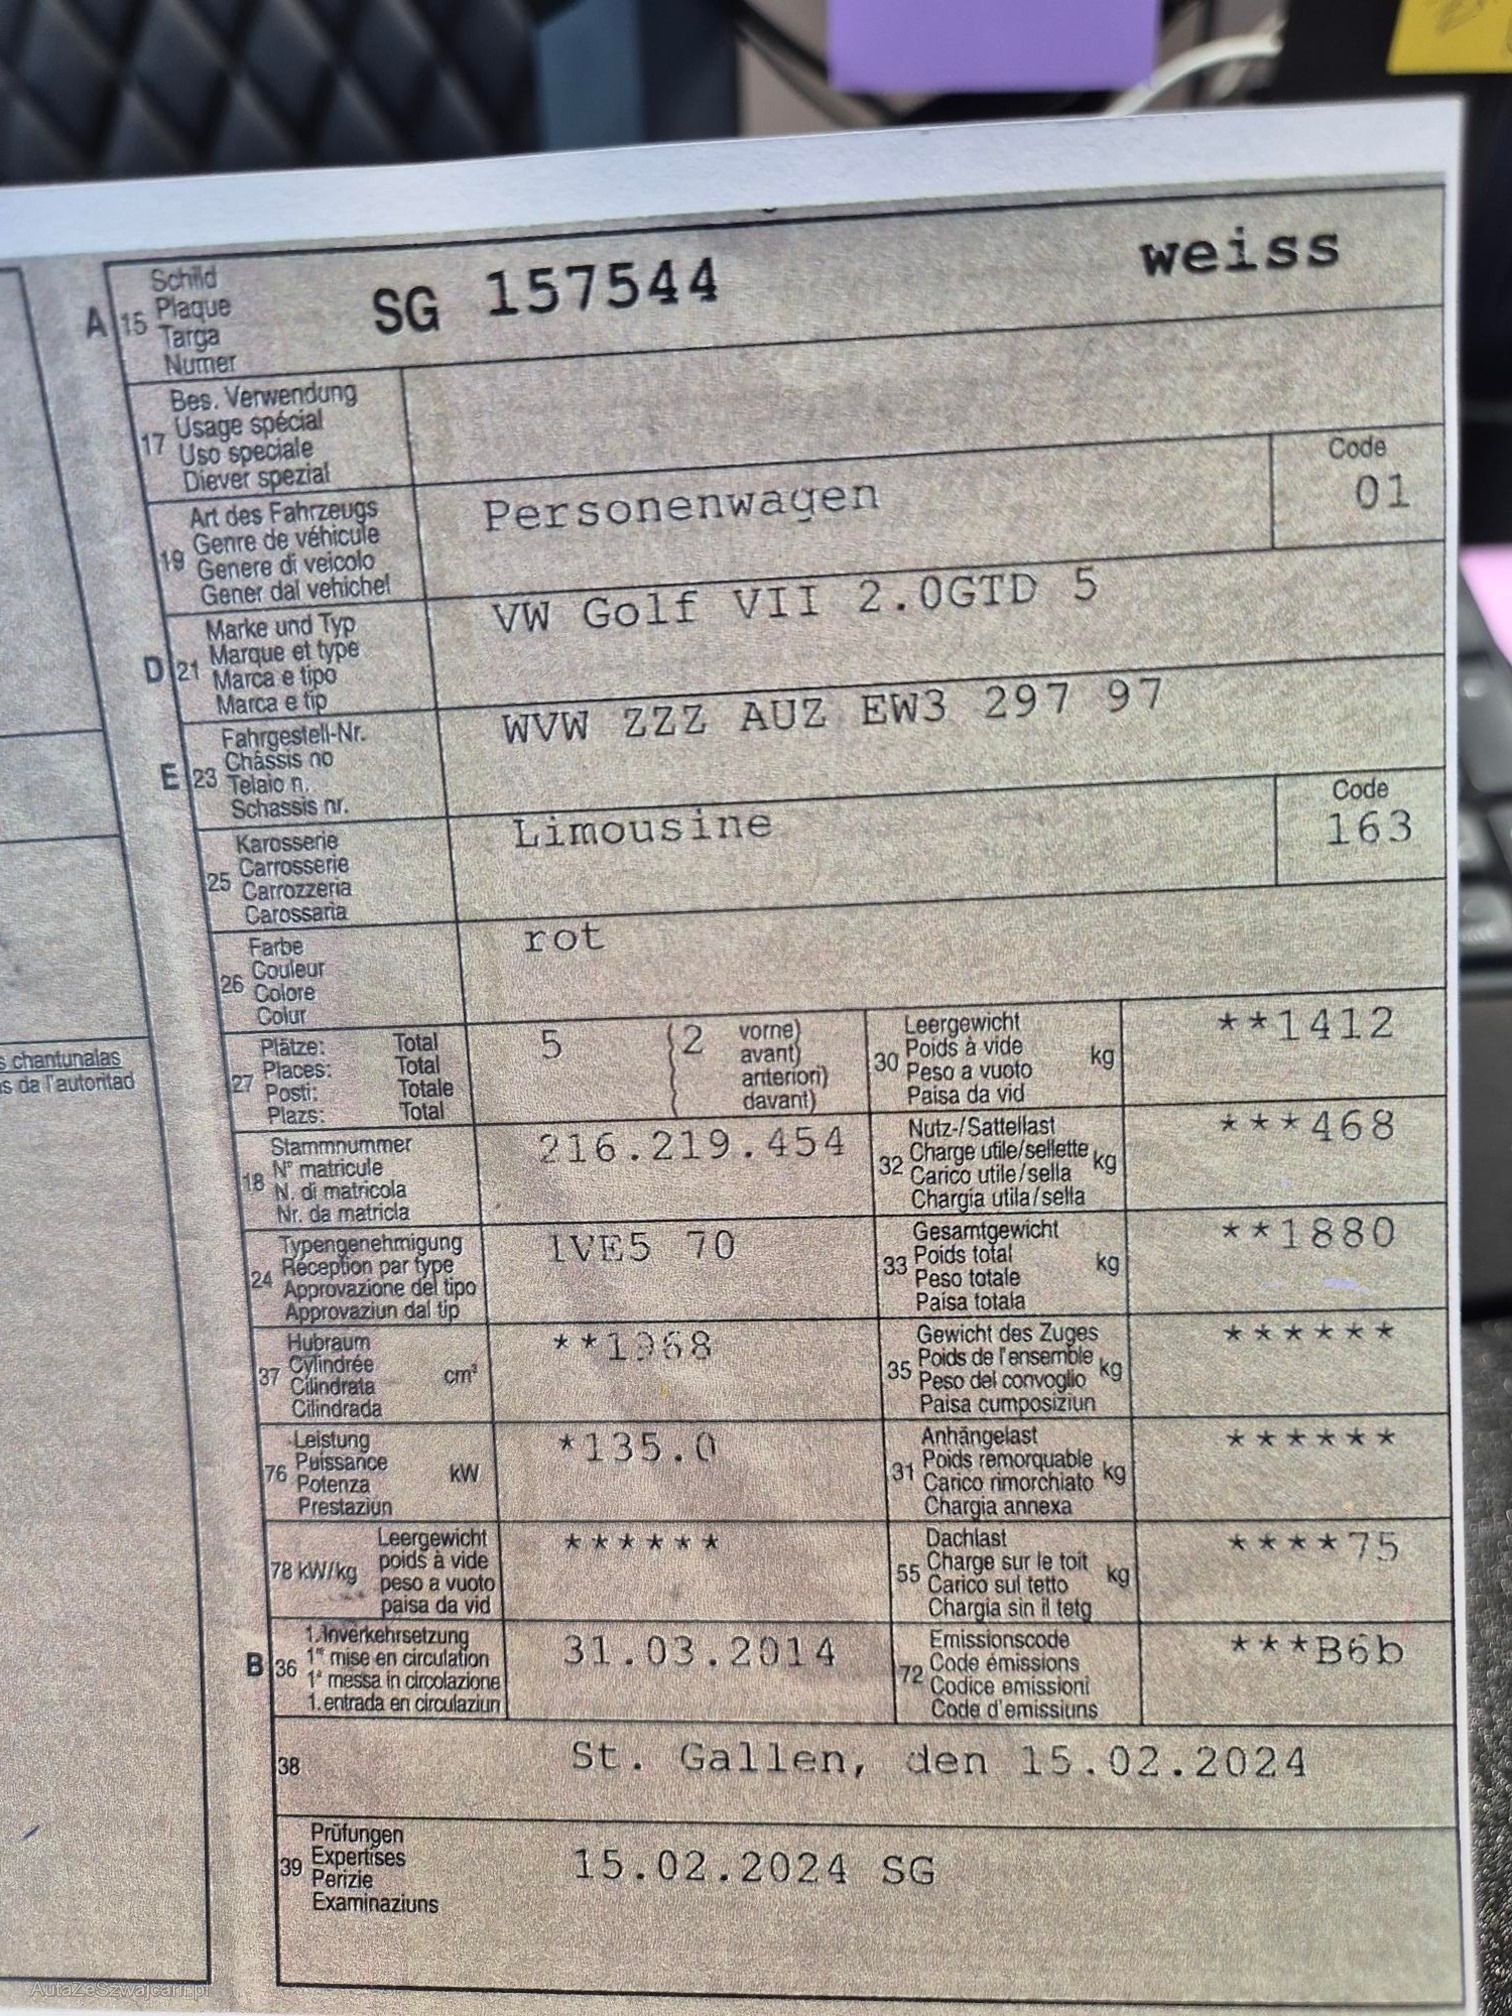 A 15 Schild
Plaque
Targa
Numer
SG 157544
weiss
17 Bes. Verwendung
Usage spécial
Uso speciale
Diever spezial
19 Art des Fahrzeugs
Genre de véhicule
Genere di veicolo
Gener dal vehichel
Personenwagen
Code
01
D 21 Marke und Typ
Marque et type
Marca e tipo
Marca e tip
VW Golf VII 2.0GTD 5
E 23 Fahrgestell-Nr.
Châssis no
Telaio n.
Schassis nr.
WVW ZZZ AUZ EW3 297 97
25 Karosserie
Carrosserie
Carrozzeria
Carossaria
Limousine
Code
163
26 Farbe
Couleur
Colore
Colur
rot
s chantunalas
s da l'autoritad
27 Plätze: Total
Places: Total
Posti: Totale
Plazs: Total
5 (2 vorne)
avant)
anteriori)
davant)
30 Leergewicht
Poids à vide
Peso a vuoto
Paisa da vid
kg
**1412
18 Stammnummer
N° matricule
N. di matricola
Nr. da matricla
216.219.454
32 Nutz-/Sattellast
Charge utile/sellette
Carico utile/sella
Chargia utila/sella
kg
***468
24 Typengenehmigung
Réception par type
Approvazione del tipo
Approvaziun dal tip
1VE5 70
33 Gesamtgewicht
Poids total
Peso totale
Paisa totala
kg
**1880
37 Hubraum
Cylindrée
Cilindrata
Cilindrada
cm³
**1968
35 Gewicht des Zuges
Poids de l'ensemble
Peso del convoglio
Paisa cumposiziun
kg
******
76 Leistung
Puissance
Potenza
Prestaziun
kW
*135.0
31 Anhängelast
Poids remorquable
Carico rimorchiato
Chargia annexa
kg
******
78 kW/kg Leergewicht
poids à vide
peso a vuoto
paisa da vid
******
55 Dachlast
Charge sur le toit
Carico sul tetto
Chargia sin il tetg
kg
****75
B 36 1. Inverkehrsetzung
1re mise en circulation
1a messa in circolazione
1. entrada en circulaziun
31.03.2014
72 Emissionscode
Code émissions
Codice emissioni
Code d'emissiuns
***B6b
38 St. Gallen, den 15.02.2024
39 Prüfungen
Expertises
Perizie
Examinaziuns
15.02.2024 SG
AutaZeSzwajcarii.pl